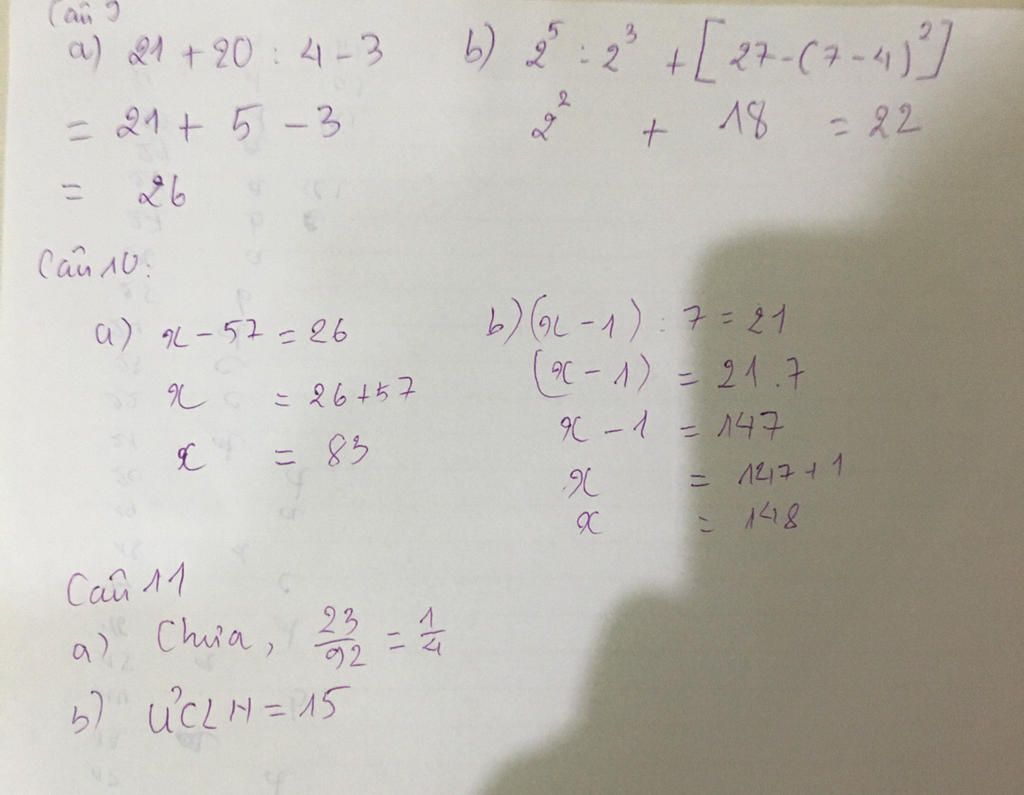 Câu 9
a) 21 + 20 : 4 - 3
= 21 + 5 - 3
= 26
b) 2^5 : 2^3 + [27 - (7 - 4)^2]
2^2 + 18 = 22
Câu 10:
a) x - 57 = 26
x = 26 + 57
x = 83
b) (x - 1) : 7 = 21
(x - 1) = 21 . 7
x - 1 = 147
x = 147 + 1
x = 148
Câu 11
a) Chưa, 23/92 = 1/4
b) ƯCLN = 15